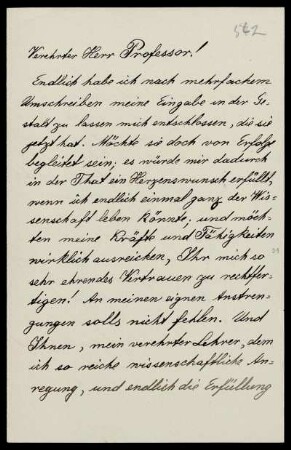 542
Verehrter Herr Professor!
Endlich habe ich nach mehrfachem
Umschreiben meine Eingabe in der Ge-
stalt zu lassen mich entschlossen, die sie
jetzt hat. Möchte sie doch von Erfolg
begleitet sein; es würde mir dadurch
in der That ein Herzenswunsch erfüllt,
wenn ich endlich einmal ganz der Wis-
senschaft leben könnte; und möch-
ten meine Kräfte und Fähigkeiten
wirklich ausreichen, Ihr mich so
sehr ehrendes Vertrauen zu rechtfer-
tigen! An meinen eignen Anstren-
gungen solls nicht fehlen. Und
Ihnen, mein verehrter Lehrer, dem
ich so reiche wissenschaftliche An-
regung, und endlich die Erfüllung